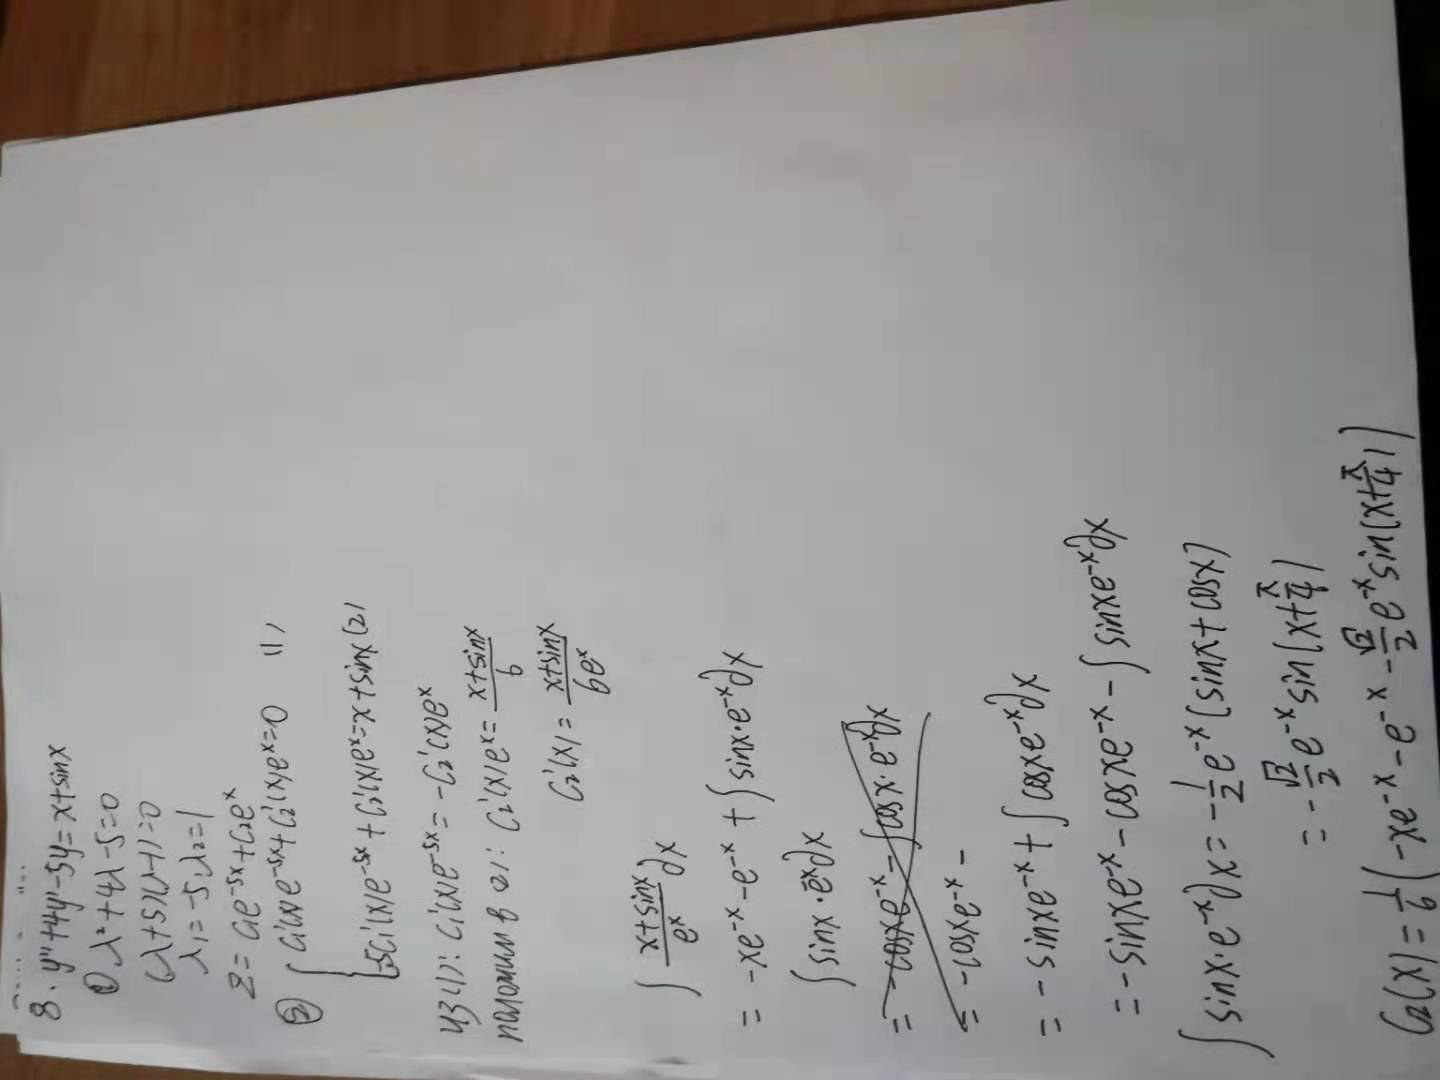 8. y''+4y'-5y=x+sinx
① λ²+4λ-5=0
(λ+5)(λ-1)=0
λ₁=-5, λ₂=1
Z= C₁e^{-5x}+C₂e^x
② { C₁'(x)e^{-5x}+C₂'(x)e^x=0 (1)
-5C₁'(x)e^{-5x}+C₂'(x)e^x=x+sinx (2)
Из (1): C₁'(x)e^{-5x}=-C₂'(x)e^x
положим в (2): C₂'(x)e^x=\frac{x+sinx}{6}
C₂'(x)=\frac{x+sinx}{6e^x}
∫\frac{x+sinx}{e^x}∂x
= -xe^{-x}-e^{-x}+∫sinx·e^{-x}∂x
∫sinx·e^{-x}∂x
= -cosxe^{-x}-∫cosx·e^{-x}∂x
= -cosxe^{-x}-
= -sinxe^{-x}+∫cosxe^{-x}∂x
= -sinxe^{-x}-cosxe^{-x}-∫sinxe^{-x}∂x
∫sinx·e^{-x}∂x=-\frac{1}{2}e^{-x}(sinx+cosx)
= -\frac{√2}{2}e^{-x}sin(x+\frac{π}{4})
C₂(x)=\frac{1}{6}(-xe^{-x}-e^{-x}-\frac{√2}{2}e^{-x}sin(x+\frac{π}{4}))